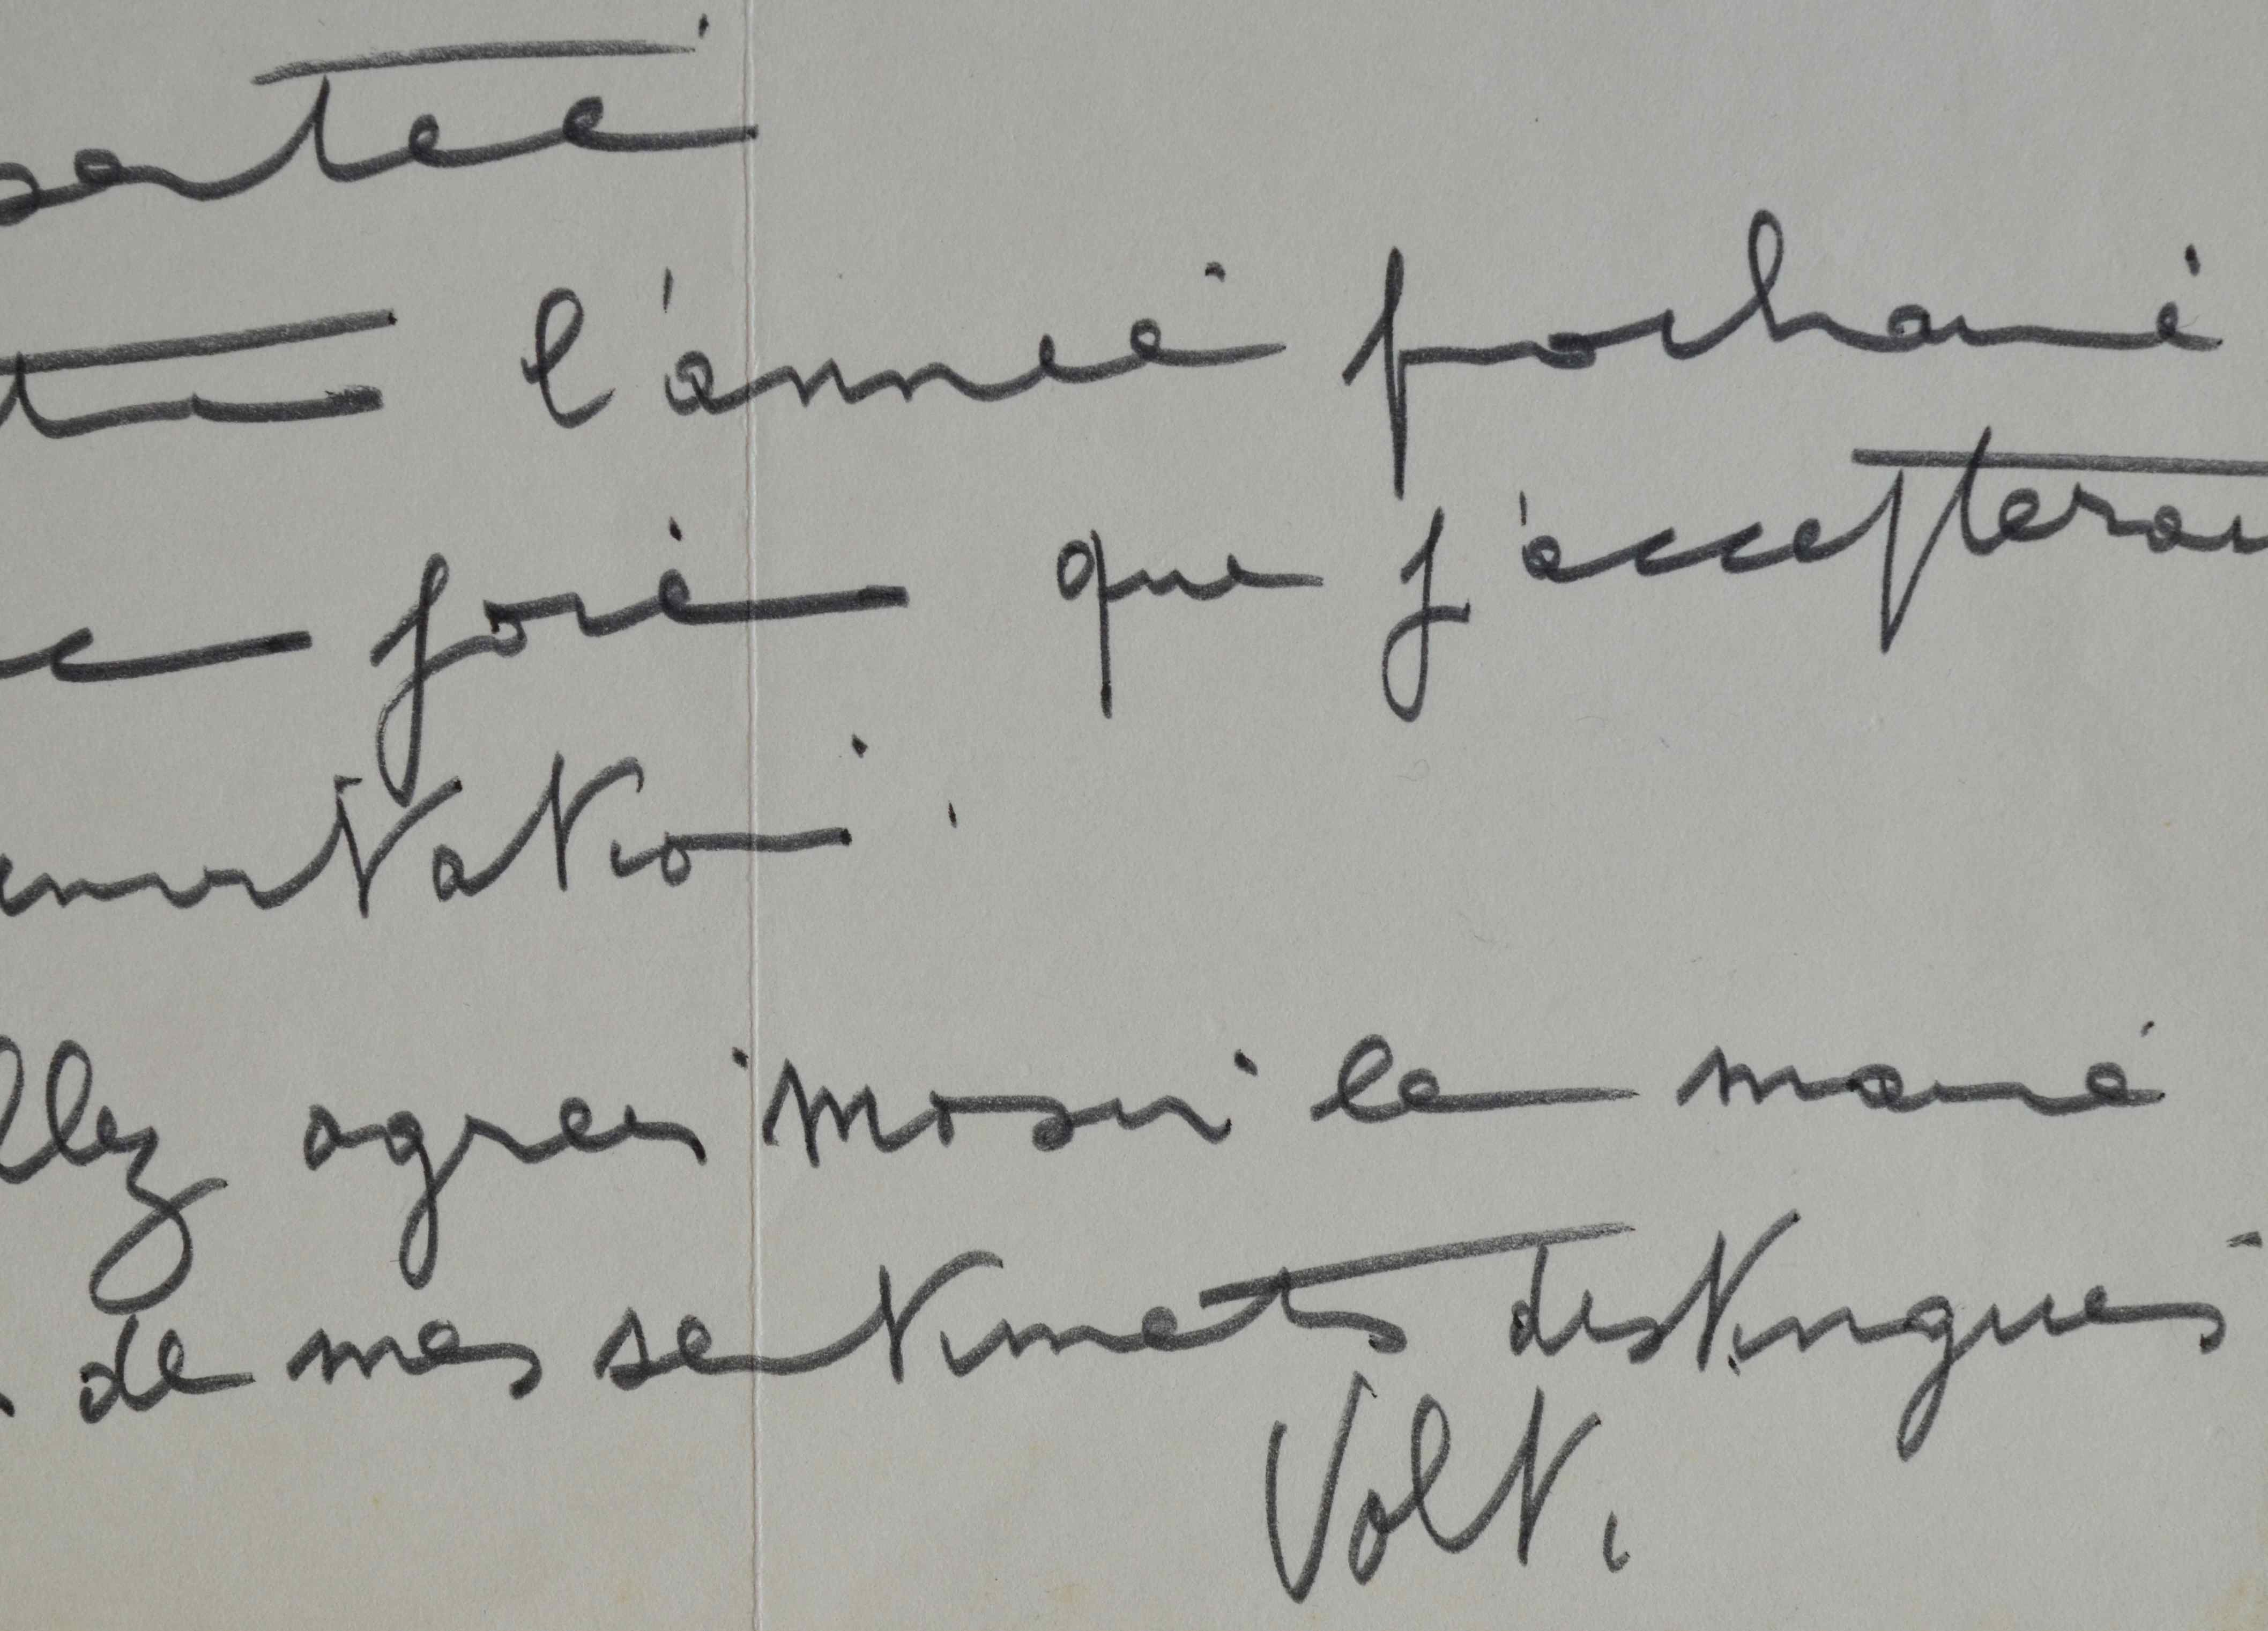 santé
l'année prochaine
joie que j'accepterai
invitation.
agréer monsieur le maire
de mes sentiments distingués
Volti